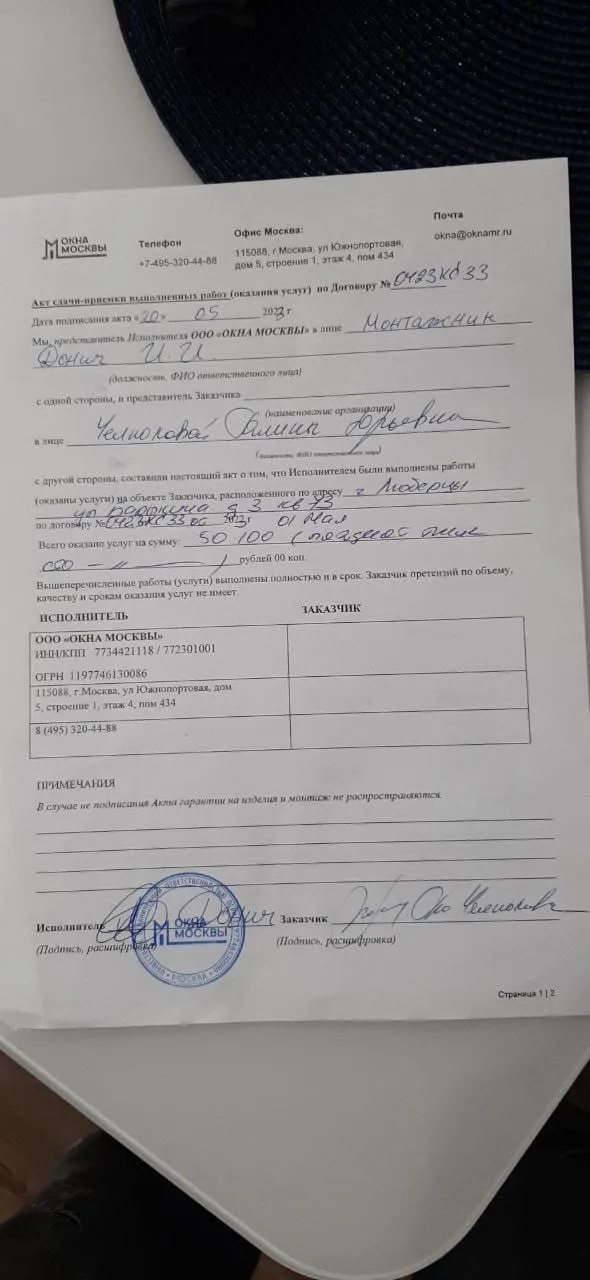 ОКНА
МОСКВЫ
Телефон
+7-495-320-44-88
Офис Москва:
115088, г.Москва, ул Южнопортовая,
дом 5, строение 1, этаж 4, пом 434
Почта
okna@oknamr.ru
Акт сдачи-приемки выполненных работ (оказания услуг) по Договору № 0423КС33
Дата подписания акта «20» 05 2023 г
Мы, представитель Исполнителя ООО «ОКНА МОСКВЫ» в лице Монтажник
Донич И. И.
(должность, ФИО ответственного лица)
с одной стороны, и представитель Заказчика
(наименование организации)
в лице Юрьевна
(должность, ФИО ответственного лица)
с другой стороны, составили настоящий акт о том, что Исполнителем были выполнены работы
(оказаны услуги) на объекте Заказчика, расположенного по адресу г Люберцы
ул д 3 кв 73
по договору № 0423КС33 от 2023 г 01 Мая
Всего оказано услуг на сумму: 50 100 (
сто — " — ) рублей 00 коп.
Вышеперечисленные работы (услуги) выполнены полностью и в срок. Заказчик претензий по объему,
качеству и срокам оказания услуг не имеет.
ИСПОЛНИТЕЛЬ ЗАКАЗЧИК
ООО «ОКНА МОСКВЫ»
ИНН/КПП 7734421118 / 772301001
ОГРН 1197746130086
115088, г.Москва, ул Южнопортовая, дом
5, строение 1, этаж 4, пом 434
8 (495) 320-44-88
ПРИМЕЧАНИЯ
В случае не подписания Акта гарантии на изделия и монтаж не распространяются.
Исполнитель Донич Заказчик
ОКНА
МОСКВЫ
• МОСКВА •
(Подпись, расшифровка) (Подпись, расшифровка)
Страница 1 | 2